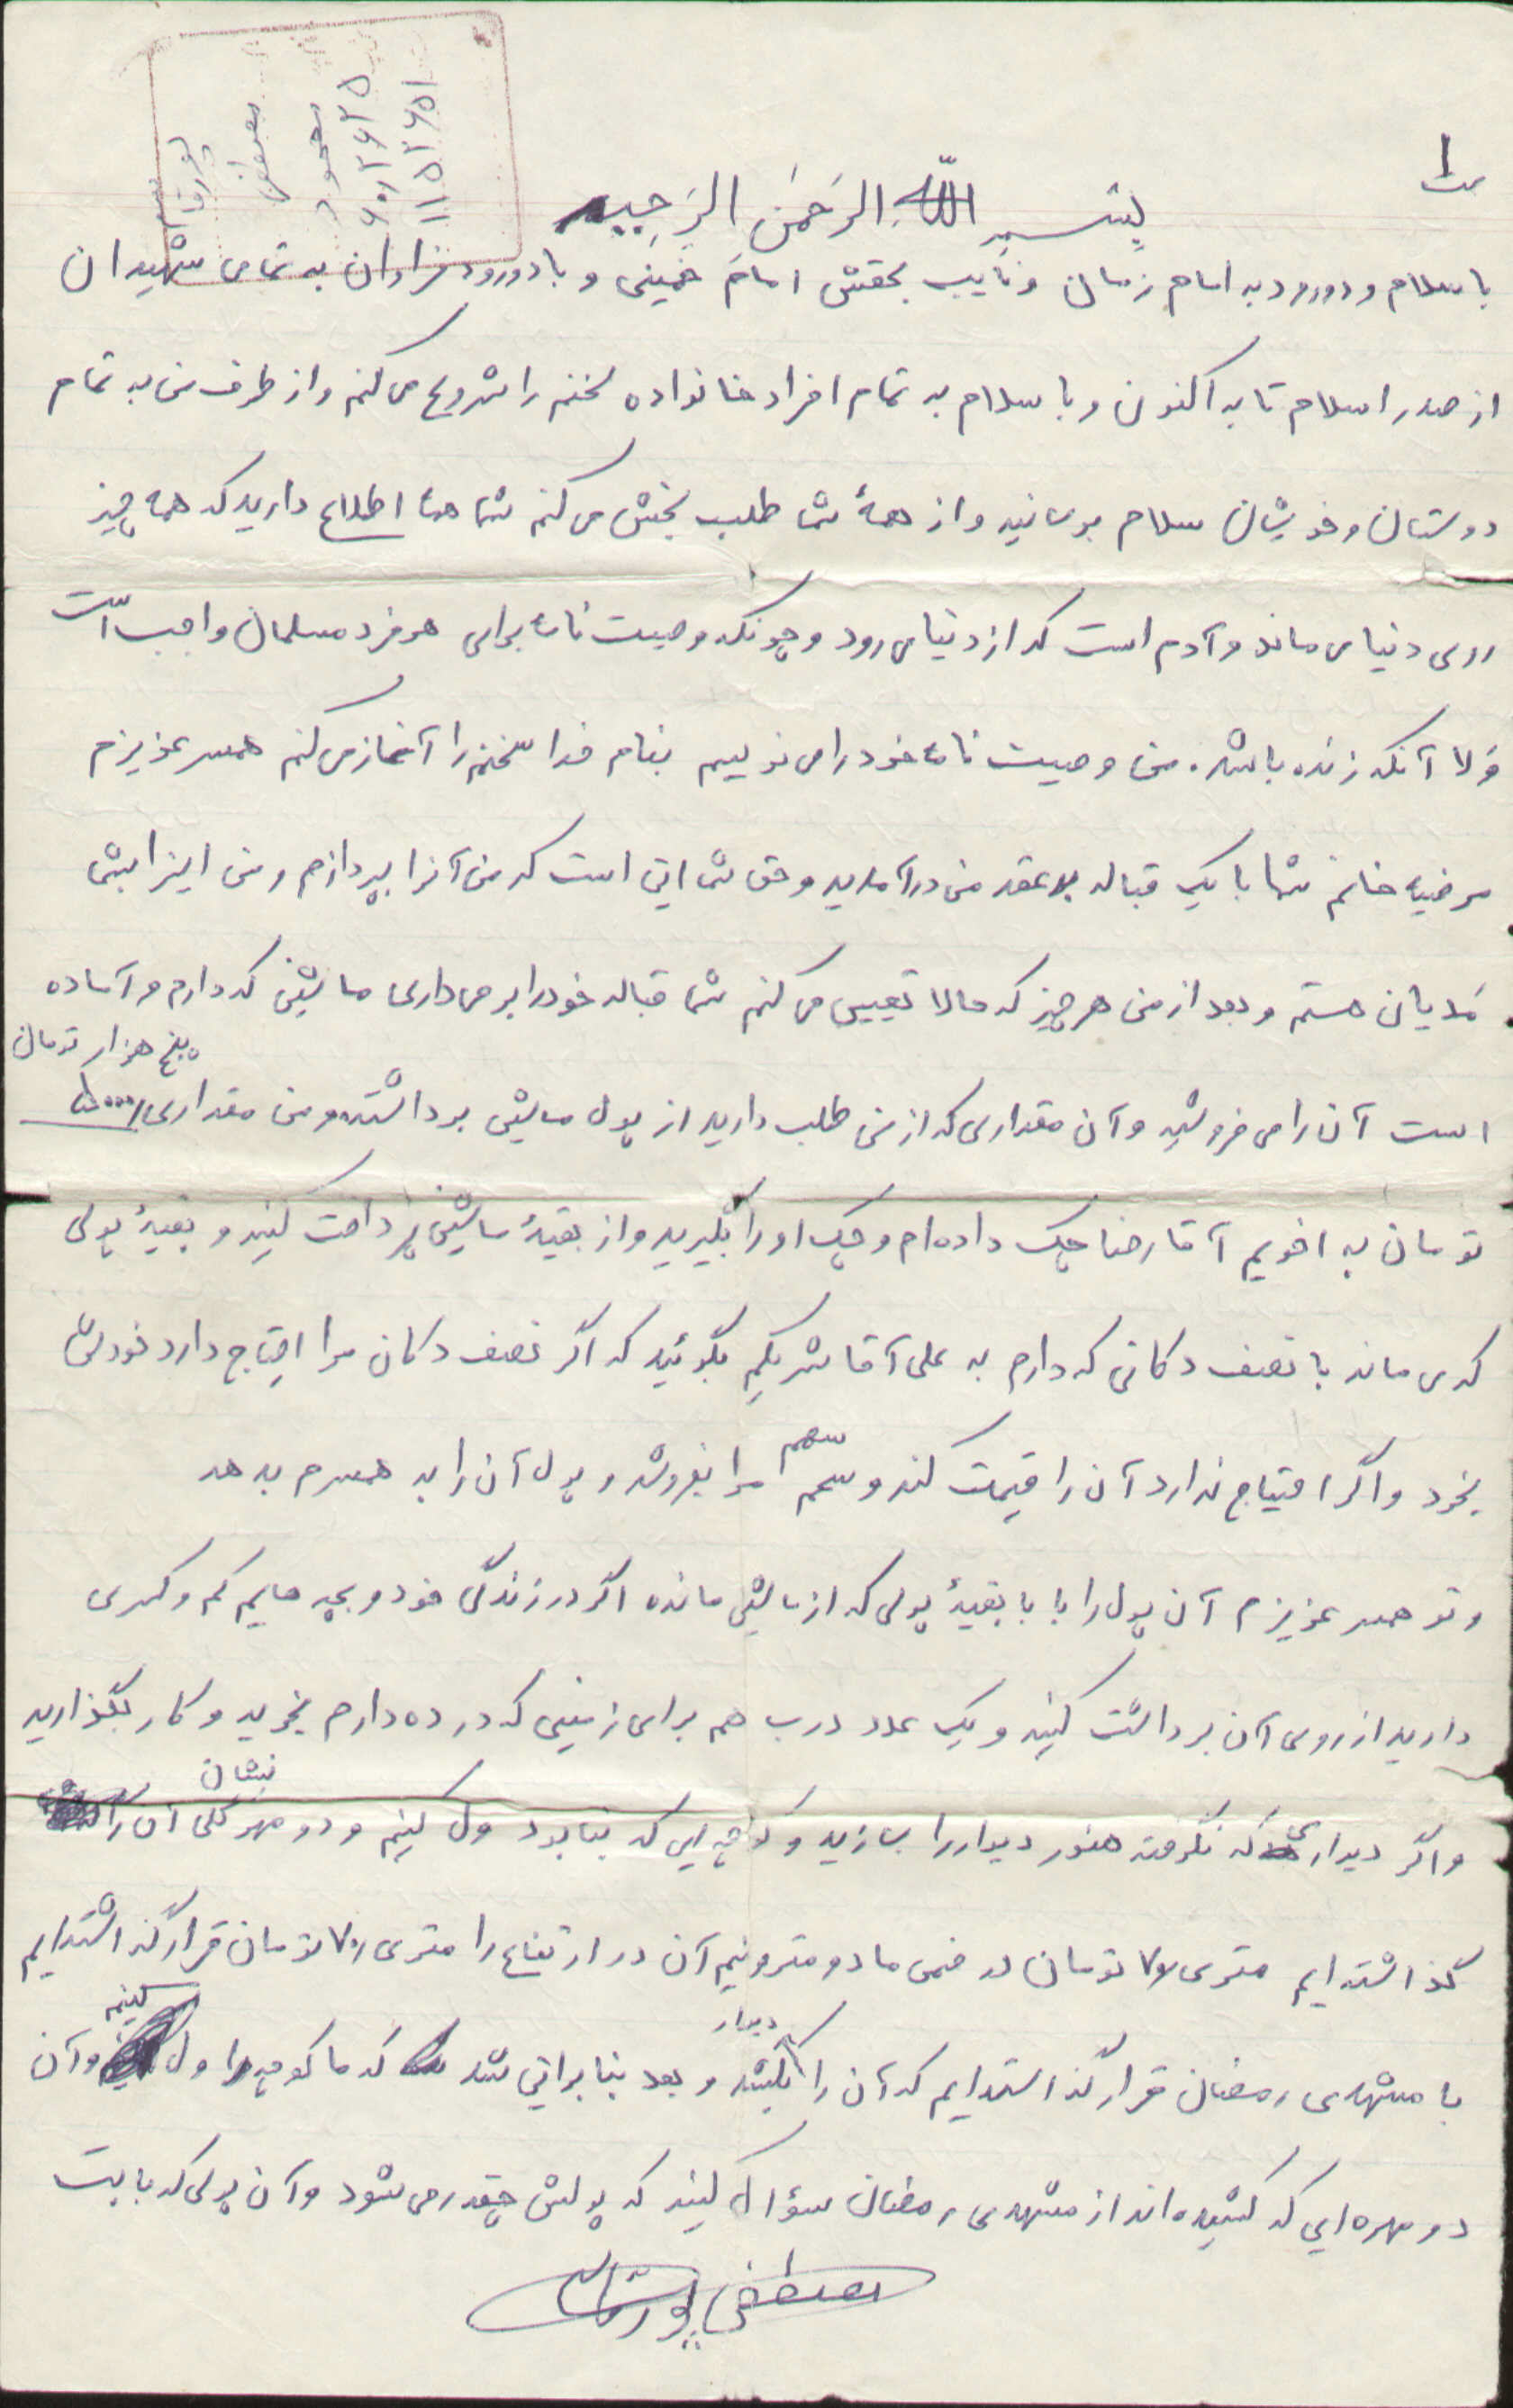 ۱
بسم الله الرحمن الرحیم
با سلام و دورود به امام زمان و نایب بحقش امام خمینی و با دورود فراوان به تمامی شهیدان
از صدر اسلام تا به اکنون و با سلام به تمام افراد خانواده سخنم را شروع می کنم و از طرف من به تمام
دوستان و خویشان سلام برسانید و از همهٔ شما طلب بخشش می کنم شما ها اطلاع دارید که همه چیز
روی دنیا می ماند و آدم است که از دنیا می رود و چونکه وصیت نامه برای هر فرد مسلمان واجب است
ولا آنکه زنده باشد. من وصیت نامه خود را می نویسم بنام خدا سخنم را آغاز می کنم همسر عزیزم
مرضیه خانم شما با یک قباله به عقد من درآمدید و حق شما این است که من آنرا بپردازم و من اینرا بشما
مدیان هستم و بعد از من هر چیز که حالا تعیین می کنم شما قباله خود را بر می داری ماشینی که دارم و آماده
پنج هزار تومان
است آن را می فروشید و آن مقداری که از من طلب دارید از پول ماشین برداشته و من مقداری ۵۰۰۰
تومان به اخویم آقا رضا چک داده ام و چک او را بگیرید و از بقیهٔ ماشین پرداخت کنید و بقیهٔ پولی
که می ماند با نصف دکانی که دارم به علی آقا شریکم بگوئید که اگر نصف دکان مرا احتیاج دارد خودش
سهم
بخرد و اگر احتیاج ندارد آن را قیمت کند و سهم مرا بفروشد و پول آن را به همسرم بدهد
و تو همسر عزیزم آن پول را با با بقیهٔ پولی که از ماشین مانده اگر در زندگی خود و بچه هایم کم و کسری
دارید از روی آن برداشت کنید و یک عدد درب هم برای زمینی که در ده دارم بخرید و کار بگذارید
نبشان
و اگر دیواری که نگرفته هنوز دیوار را بسازید و کوچه ایی که بنا بود ول کنیم و دو مهر گلی آن را
گذاشته ایم متری ۷۰ تومان در ضمن ما دو مترونیم آن در ارتفاع را متری ۷۰ تومان قرار گذاشته ایم
دیوار کنیم
با مشهدی رمضان قرار گذاشته ایم که آن را بکشد و بعد بنا براین شد که ما کوچه را ول و آن
دو مهره ایی که کشیده اند از مشهدی رمضان سؤال کنید که پولش چقدر می شود و آن پولی که بابت
مصطفی